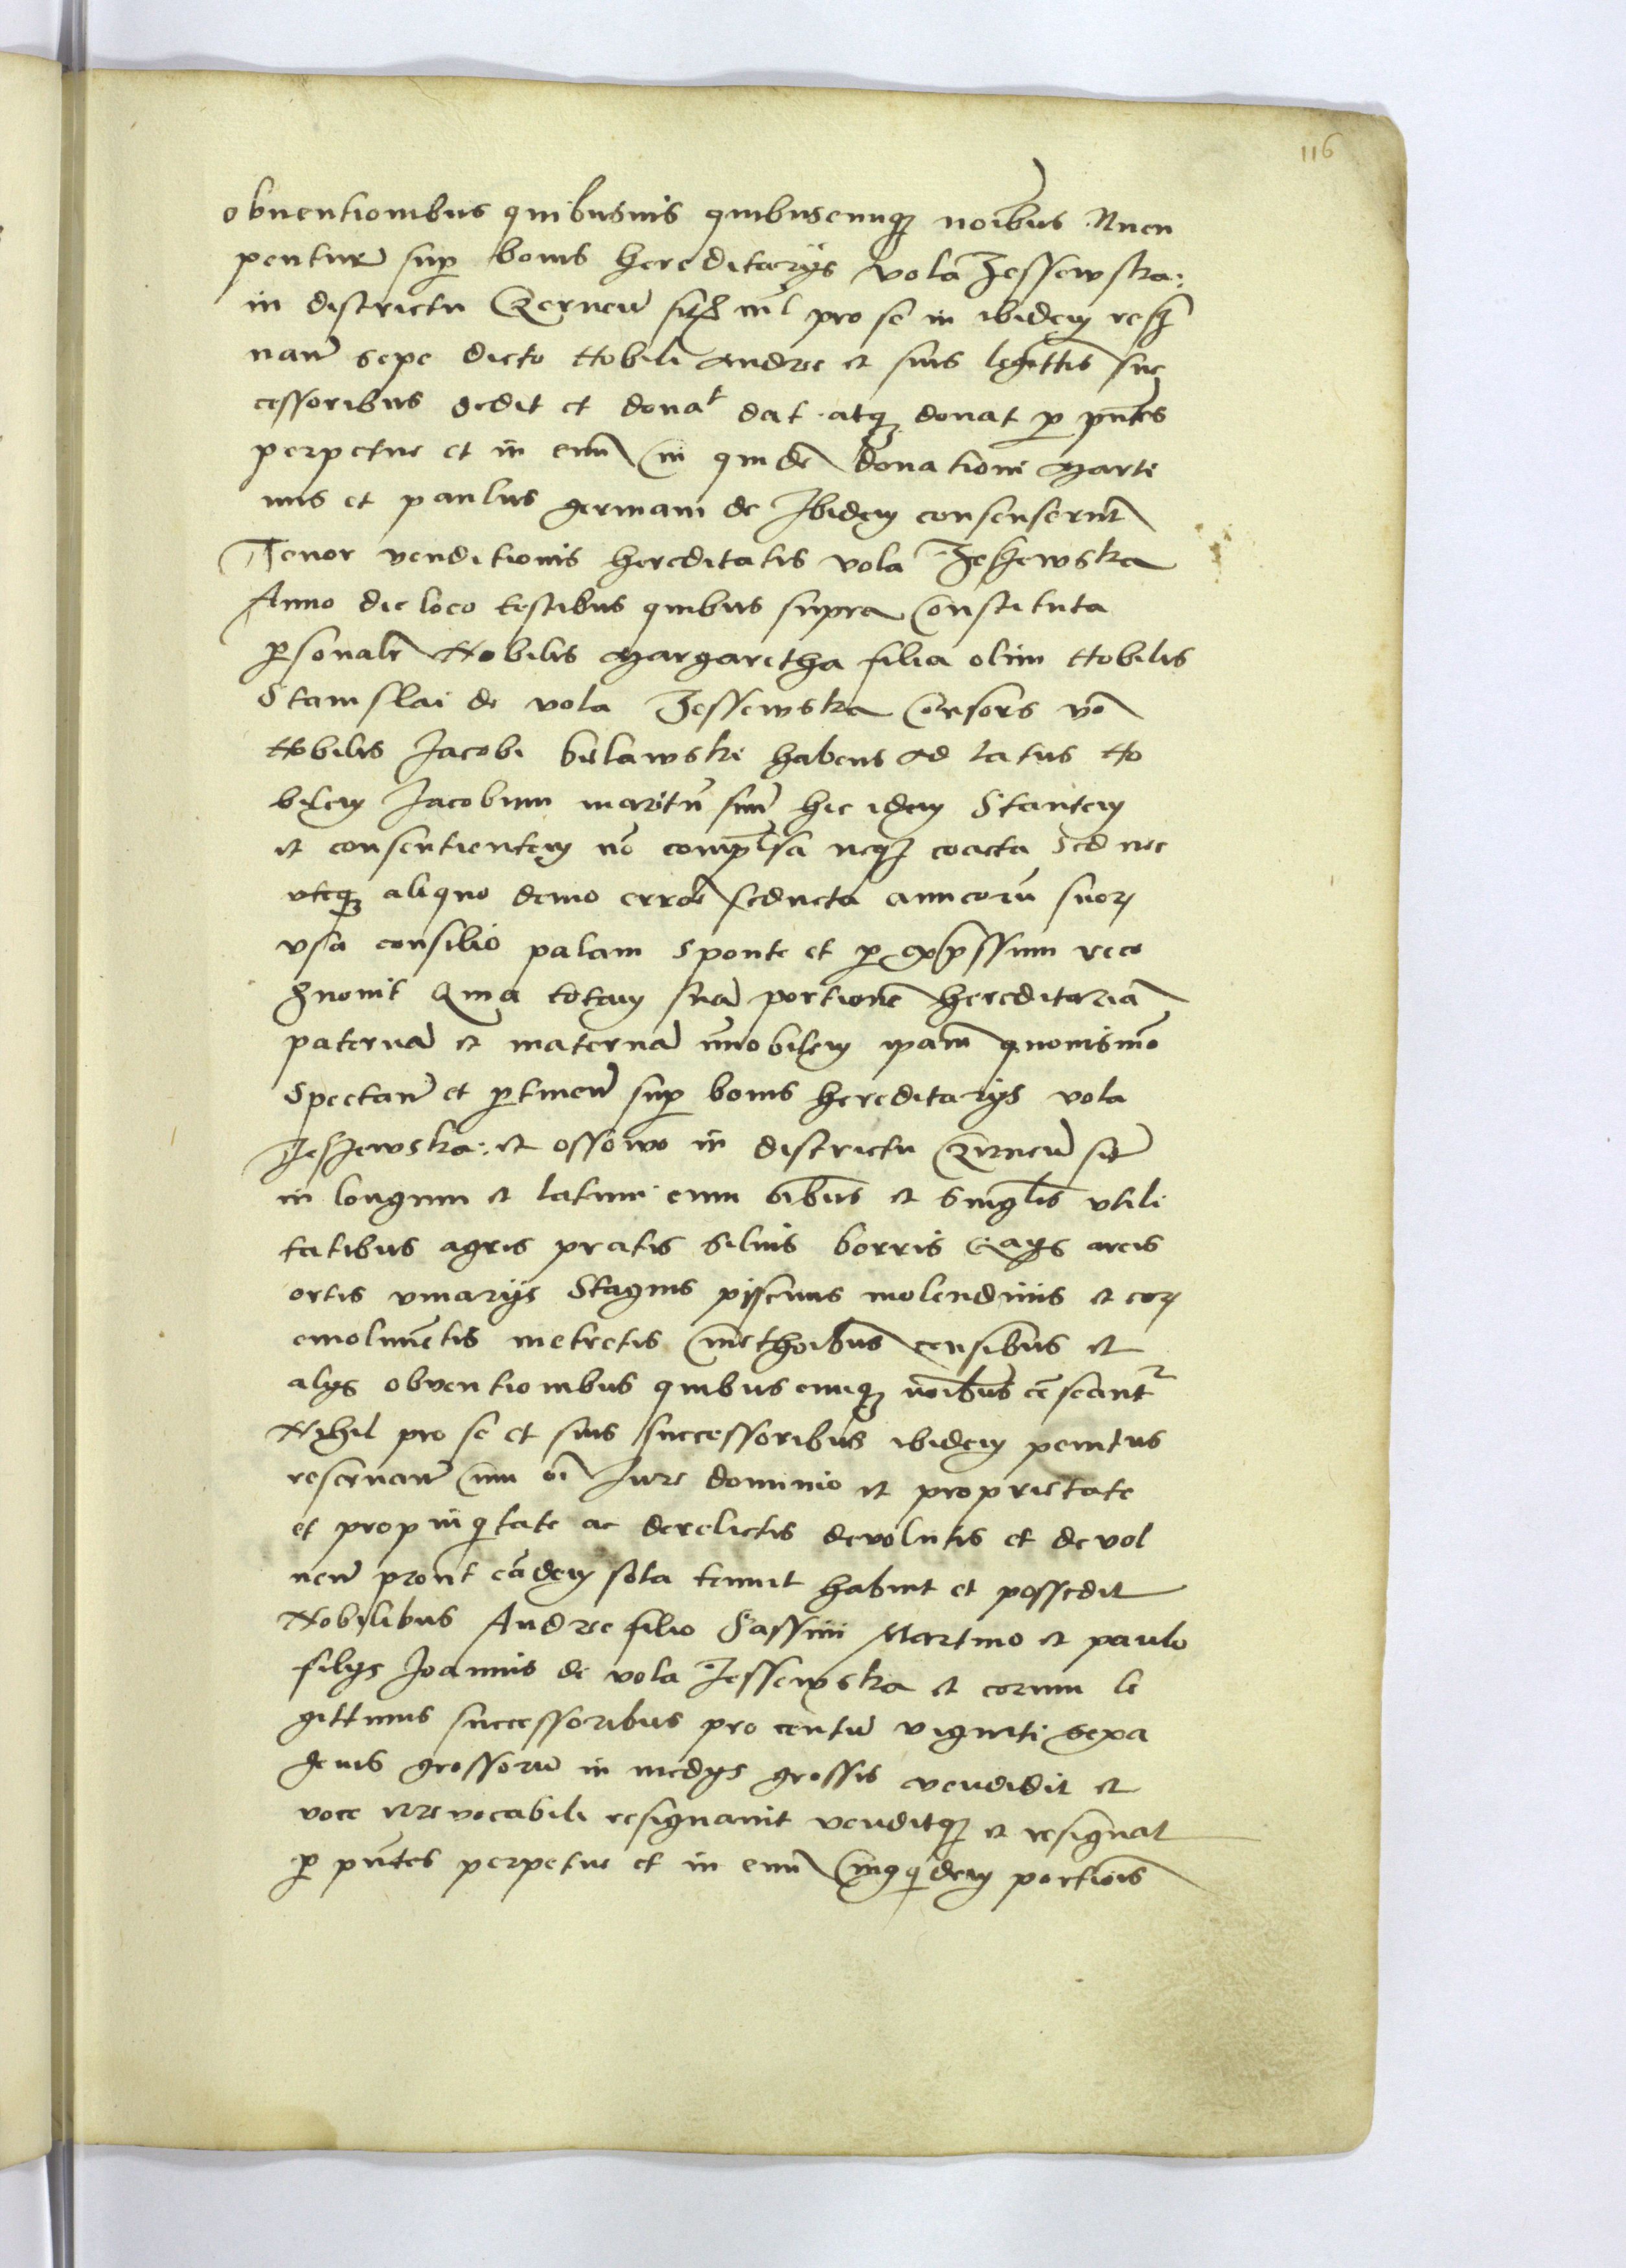 116
obuentionibus quibusuis quibuscunqȝ noībus Nuncu
pentur sup bonis hereditarys vola Jessewska:
in districtu Czernen̄ sitis nil pro se in ibidem reser
uan̄ sepe dicto Nobili Andree et suis legittis suc
cessoribus dedit et donat dat atqȝ donat p pn̄tes
perpetue et in euū Cui quidē donationi Marti
nus et paulus germani de Ibidem consenserūt
Tenor venditionis hereditatis vola Jessewska
Anno die loco testibus quibus supra Constituta
psonalr̄ Nobilis Margaretha filia olim Nobilis
Stanislai de vola Jessewska Consors vō
Nobilis Jacobi bielawski habens ad latus No
bilem Jacobum maritū suū hic idem Stantem
et consentientem nō compulsa neqȝ coacta Sed nec
vteqȝ aliquo demo errore seducta amicorū suorȝ
vsa consilio palam Sponte et p expssum reco
gnouit Quia totam suā portionē hereditariā
paternā et maternā īmobilem ipam quouismō
Spectan̄ et ptinen̄ sup bonis hereditarys vola
Jessewska: et ossowo in districtu Czernen̄ sit̄
in longum et latum cum oībus et singlis vtili
tatibus agris pratis siluis borris gays areis
ortis viuarys Stagnis piscinis molendinis et eorȝ
emolumētis metretis Cmethoībus censibus et
alys obventionibus quibuscunqȝ noībus cēseantr
Nihil pro se et suis successoribus ibidem penitus
reseruan̄ Cum oī Jure dominio et proprietate
et propinqitate ac derelictis devolutis et devol
uen̄ prout eādem sola tenuit habuit et possedit
Nobilibus Andree filio Sassini Martino et paulo
filys Joannis de vola Jessewska et eorum le
gittimis successoribus pro centū viginti sexa
genis grossorū in medys grossis vendidit et
voce irrevocabili resignauit venditqȝ et resignat
p pn̄tes perpetue et in euū Cuiqidem portionis